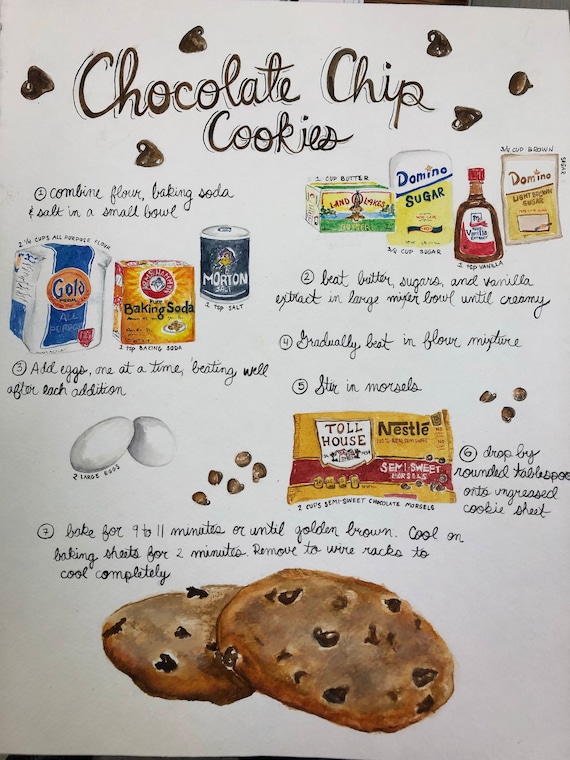 Chocolate Chip
Cookies
① combine flour, baking soda
& salt in a small bowl
1 CUP BUTTER
LAND O LAKES
BUTTER
Domino
SUGAR
3/4 CUP SUGAR
1 TSP VANILLA
Vanilla
3/4 CUP BROWN
SUGAR
Domino
LIGHT BROWN
SUGAR
2 1/4 CUPS ALL PURPOSE FLOUR
Gold
MEDAL
ALL
PURPOSE
PURE
Baking Soda
1 TSP BAKING SODA
MORTON
SALT
1 TSP SALT
② beat butter, sugars, and vanilla
extract in large mixer bowl until creamy
③ Add eggs, one at a time, beating well
after each addition
④ Gradually beat in flour mixture
⑤ Stir in morsels
2 LARGE EGGS
TOLL
HOUSE
Nestlé
SEMI-SWEET
MORSELS
2 CUPS SEMI-SWEET CHOCOLATE MORSELS
⑥ drop by
rounded tablespoon
onto ungreased
cookie sheet
⑦ bake for 9 to 11 minutes or until golden brown. Cool on
baking sheets for 2 minutes. Remove to wire racks to
cool completely